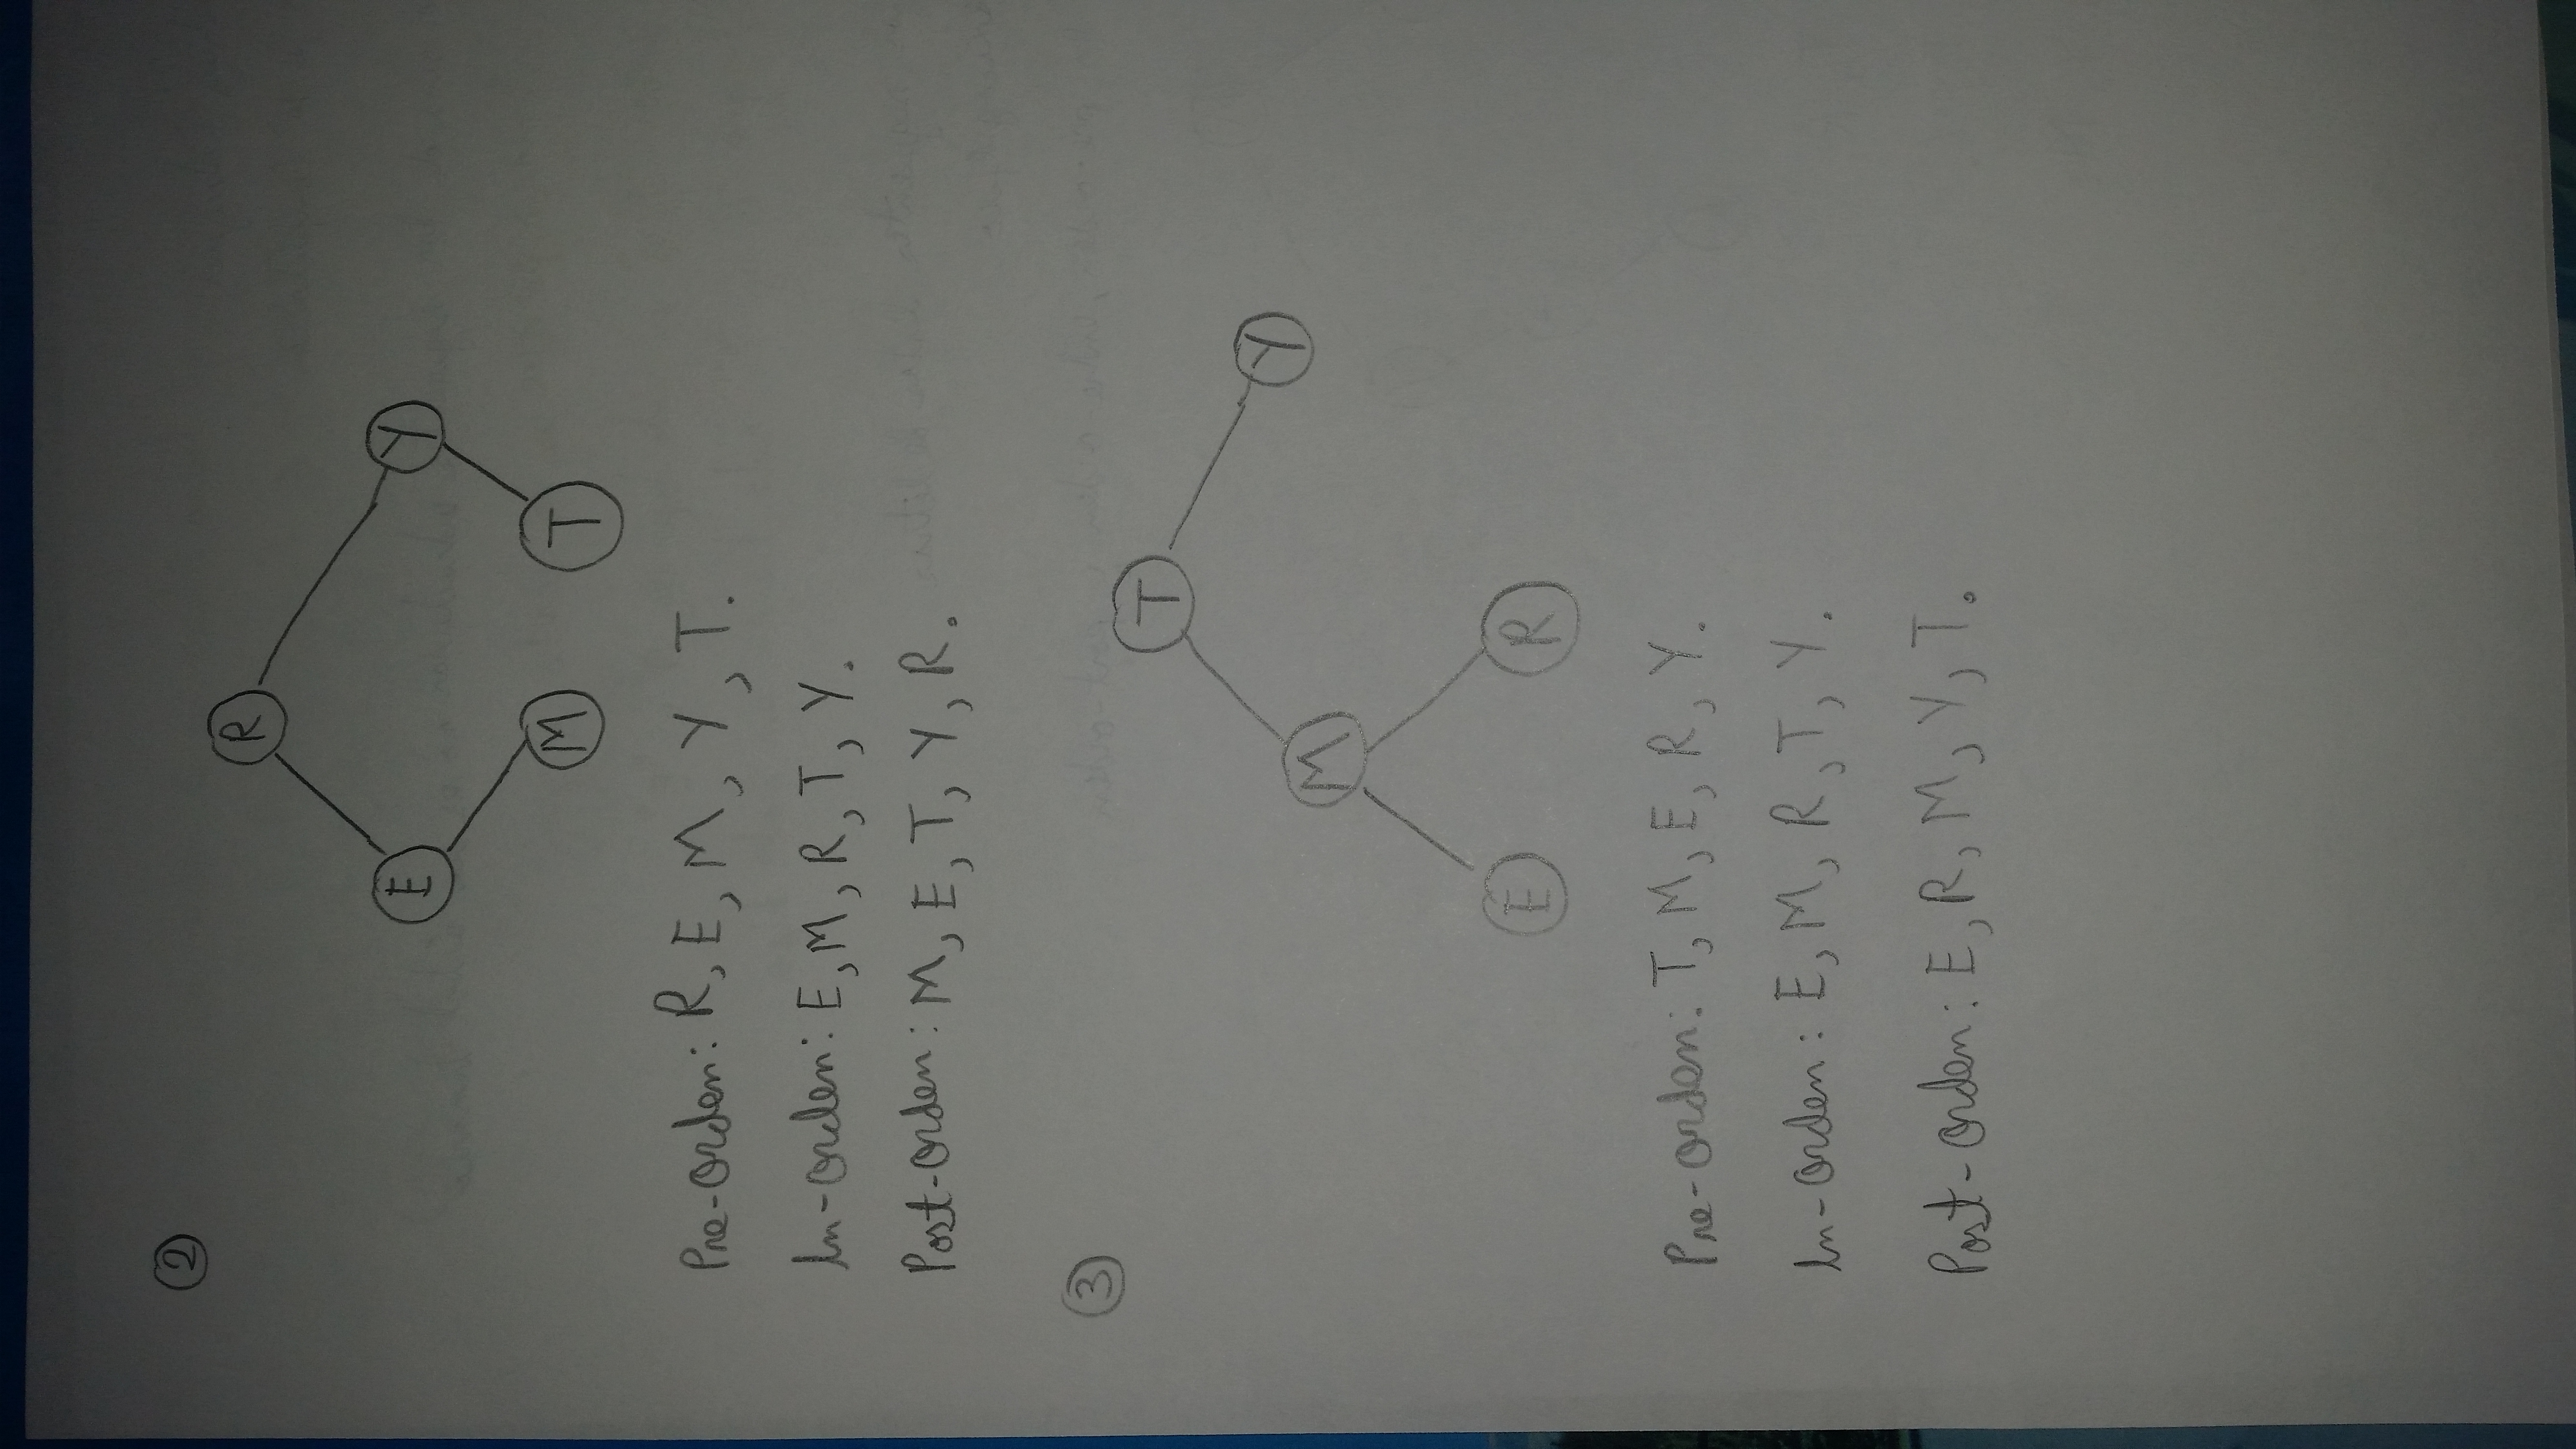 ②
R
E Y
M T
Pre-orden: R, E, M, Y, T.
In-orden: E, M, R, T, Y.
Post-orden: M, E, T, Y, R.
③
T
Y
M
E R
Pre-orden: T, M, E, R, Y.
In-orden: E, M, R, T, Y.
Post-orden: E, R, M, Y, T.